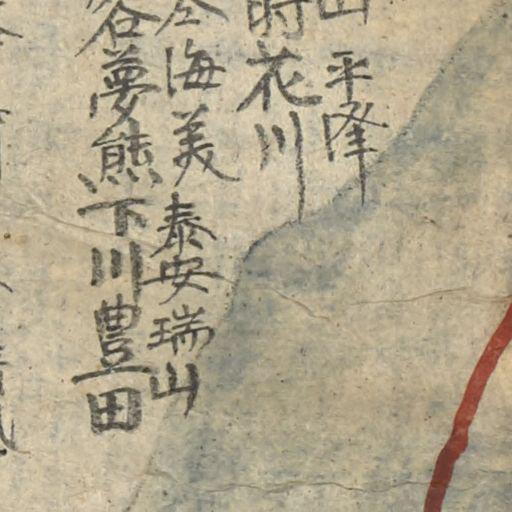 山 平隆
時花川
海美 泰安 瑞山
谷夢熊 下川 豊田